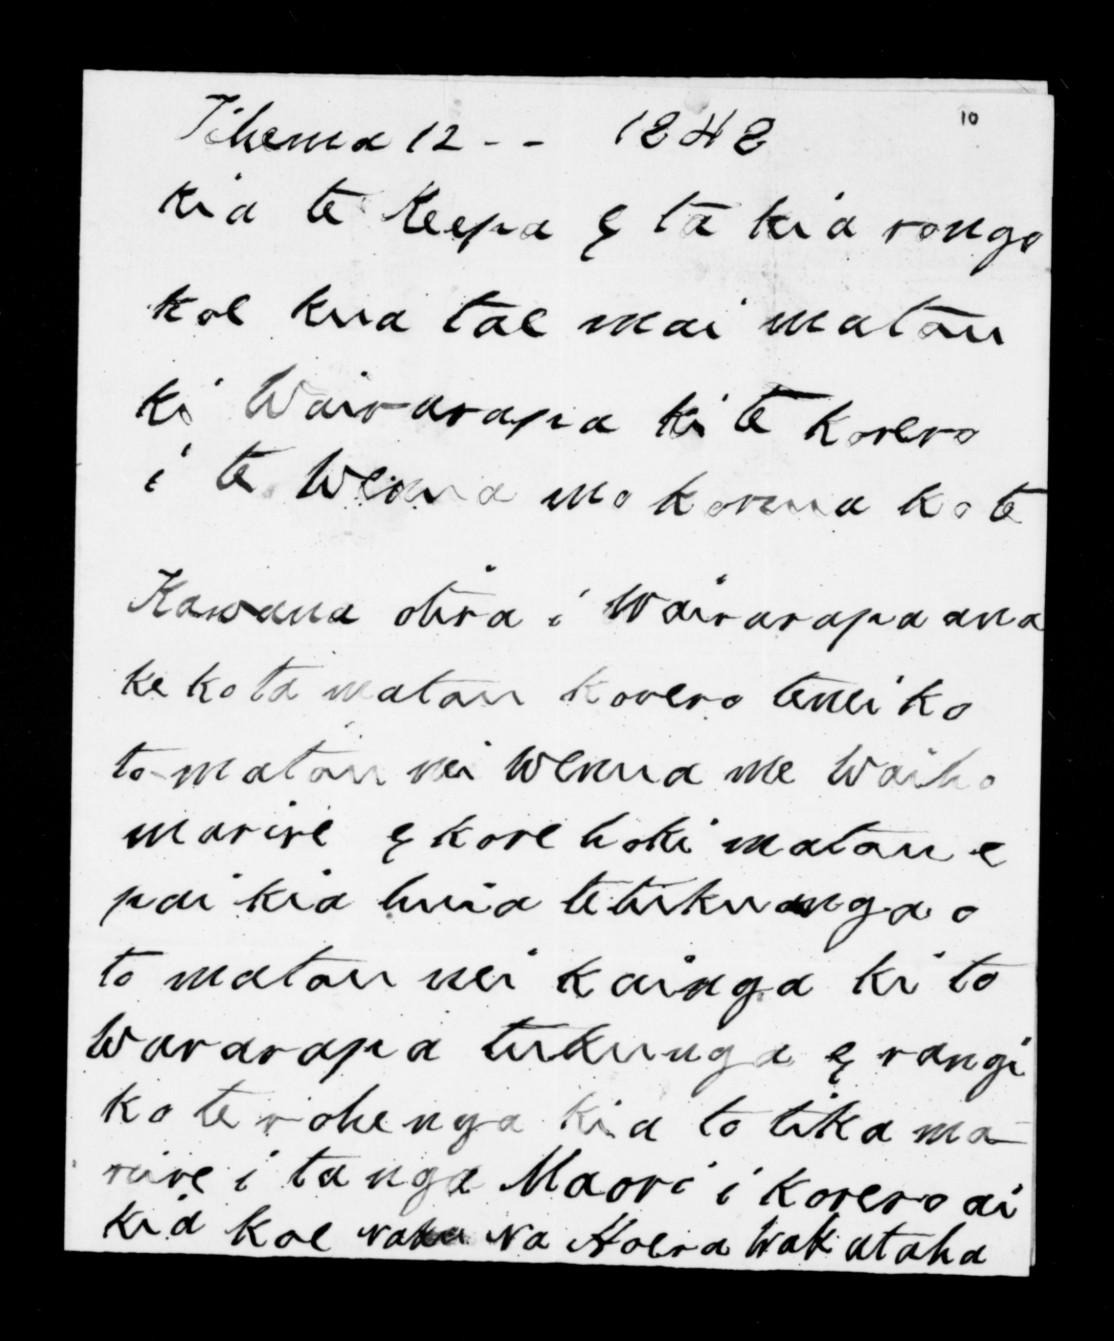 10
Tihema 12 - - 1848
kia te Keepa e ta kia rongo
koe kua tae mai matou
ki Wairarapa ki te korero
i te Wenua mo korua ko te
Kawana otira i Wairarapa ana
ke ko ta matou korero tenei ko
to matou nei Wenua me Waiho
marire e kore hoki matou e
pai kia huia te tukuanga o
to matou nei kainga ki to
Wararapa tukunga e rangi
ko te rohenga kia to tika ma-
rire i ta nga Maori i korero ai
kia koe naku Na Hoera Wakataha